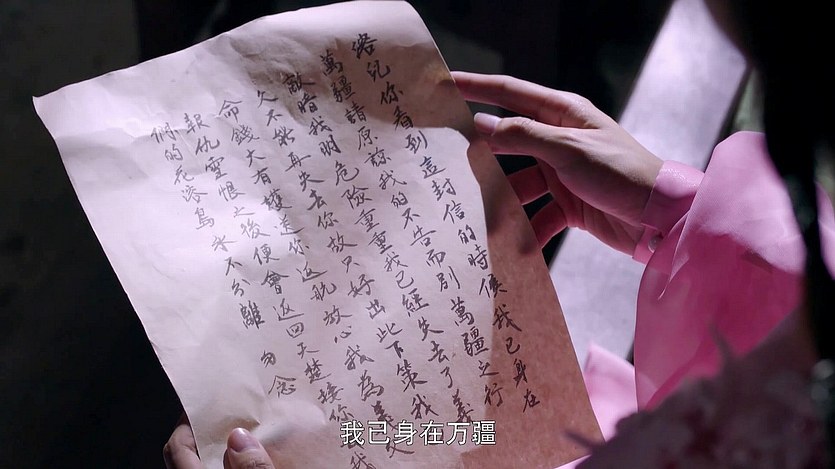 溶兒你看到這封信的時侯我已身在
萬疆請原諒我的不告而別萬疆之行
敵暗我明危險重重我已經失去了義
父不能再失去你故只好出此下策我
命錢大有護送你返航放心我為義父
報仇雪恨之後便會返回天楚接你我
們的花溶島永不分離 勿念
我已身在万疆